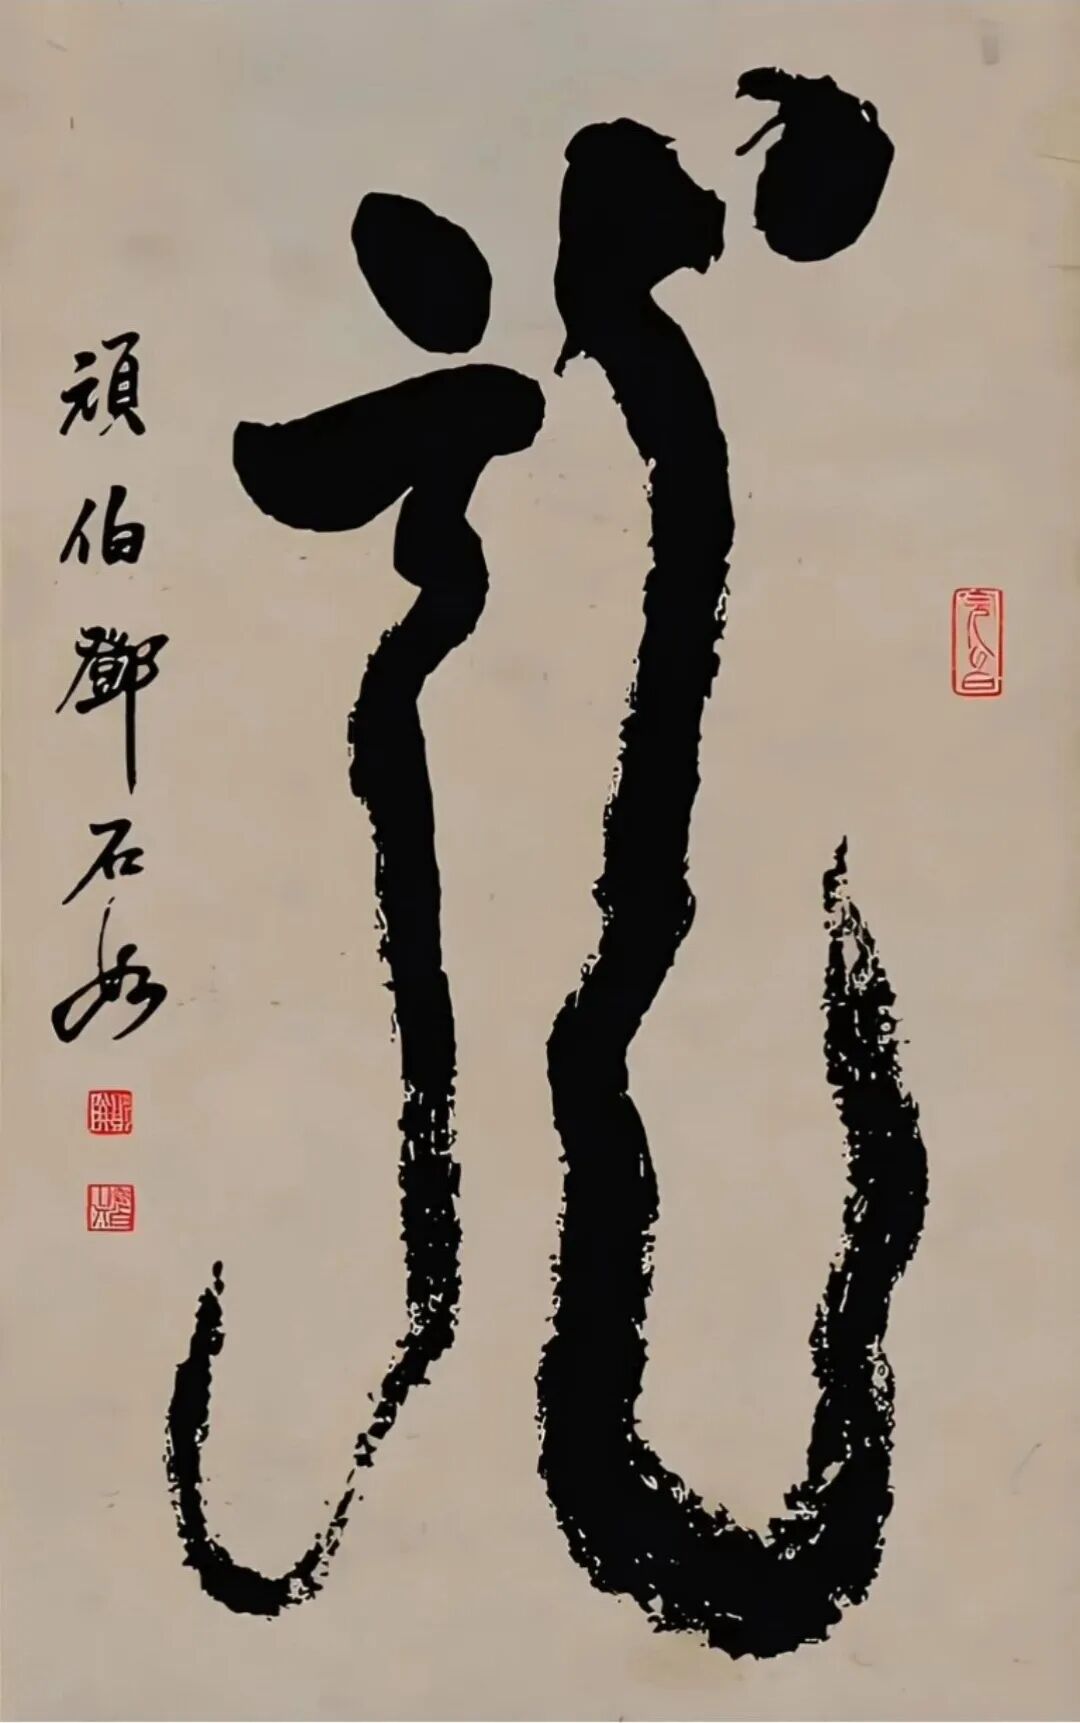 龍
頑伯鄧石如